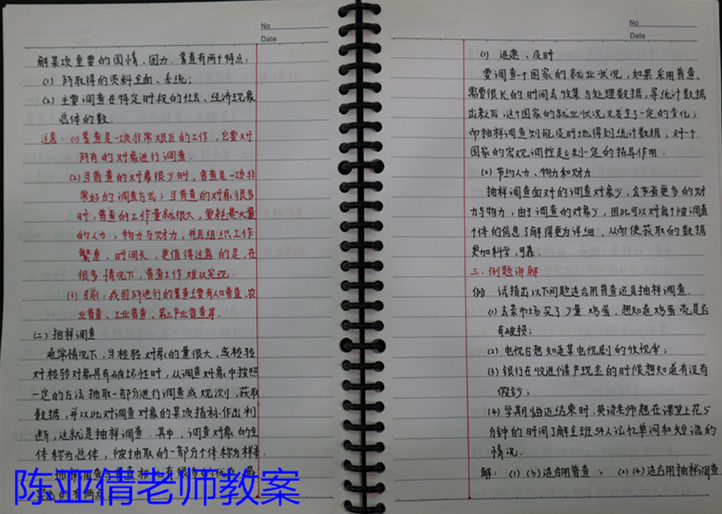 No
Date
解某项重要的国情、国力，普查有两个特点：
(1) 所取得的资料全面、系统；
(2) 主要调查在特定时段的社会、经济现象
总体的数.
注意：(1)普查是一项非常艰巨的工作，它要对
所有的对象进行调查.
(2)当普查的对象很少时，普查是一项非
常好的调查方式；当普查的对象很多
时，普查的工作量就很大，要耗费大量
的人力、物力与财力，并且组织工作
繁重、时间长，更值得注意的是，在
很多情况下，普查工作难以实现.
(3)目前，我国所进行的普查主要有人口普查，农
业普查、工业普查、第三产业普查等.
(二) 抽样调查
通常情况下，当检验对象的量很大，或检验
对检验对象具有破坏性时，从调查对象中按照
一定的方法抽取一部分进行调查或观测，获取
数据，并以此对调查对象的某项指标作出判
断，这就是抽样调查. 其中，调查对象的全
体称为总体，被抽取的一部分个体称为样本.
陈亚倩老师教案
No
Date
(1) 迅速、及时
要调查一个国家的就业状况，如果采用普查，
需要很长的时间去收集与处理数据，等统计数据
出来后，这个国家的就业状况又发生了一定的变化；
而抽样调查则能及时地得到统计数据，对一个
国家的宏观调控起到一定的指导作用.
(2) 节约人力、物力和财力
抽样调查面对的调查对象少，会节省更多的财
力与物力，由于调查的对象少，因此可以对每个被调查
个体的信息了解得更为详细，从而使获取的数据
更加科学，可靠.
三、例题讲解
例1 试指出以下问题适合用普查还是抽样调查.
(1) 去菜市场买了少量鸡蛋，想知道鸡蛋壳是否
有破损；
(2) 电视台想知道某电视剧的收视率；
(3) 银行在收进储户现金的时候想知道有没有
假钞；
(4) 学期临近结束时，英语老师想在课堂上花5
分钟的时间了解全班54人记忆单词和短语的
情况.
解：(1) (3)适合用普查；(2) (4)适合用抽样调查.